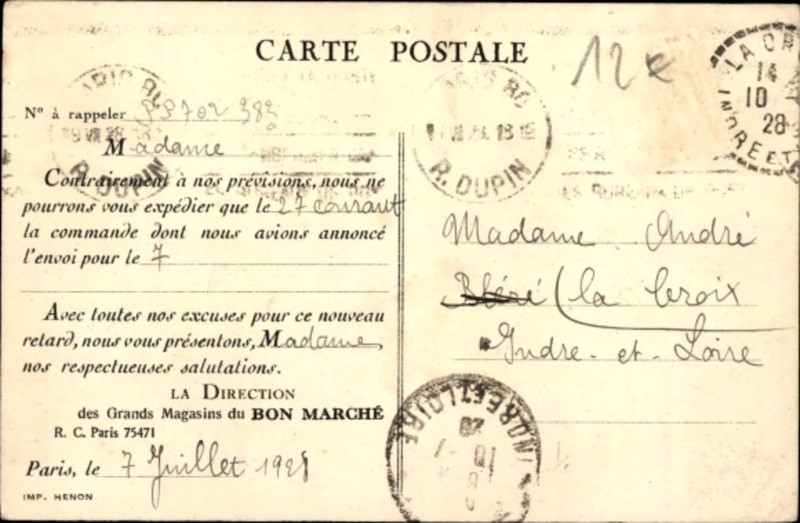 CARTE POSTALE
12€
Nº à rappeler
Madame
Contrairement à nos prévisions, nous ne
pourrons vous expédier que le 27 courant
la commande dont nous avions annoncé
l'envoi pour le 7
Avec toutes nos excuses pour ce nouveau
retard, nous vous présentons, Madame,
nos respectueuses salutations.
LA DIRECTION
des Grands Magasins du BON MARCHÉ
R. C. Paris 75471
Paris, le 7 Juillet 1928
IMP. HENON
R. DUPIN
R. DUPIN
LA CR
14
10
28
INDRE ET
Madame André
Bléré (la Croix
Indre-et-Loire
INDRE ET LOIRE